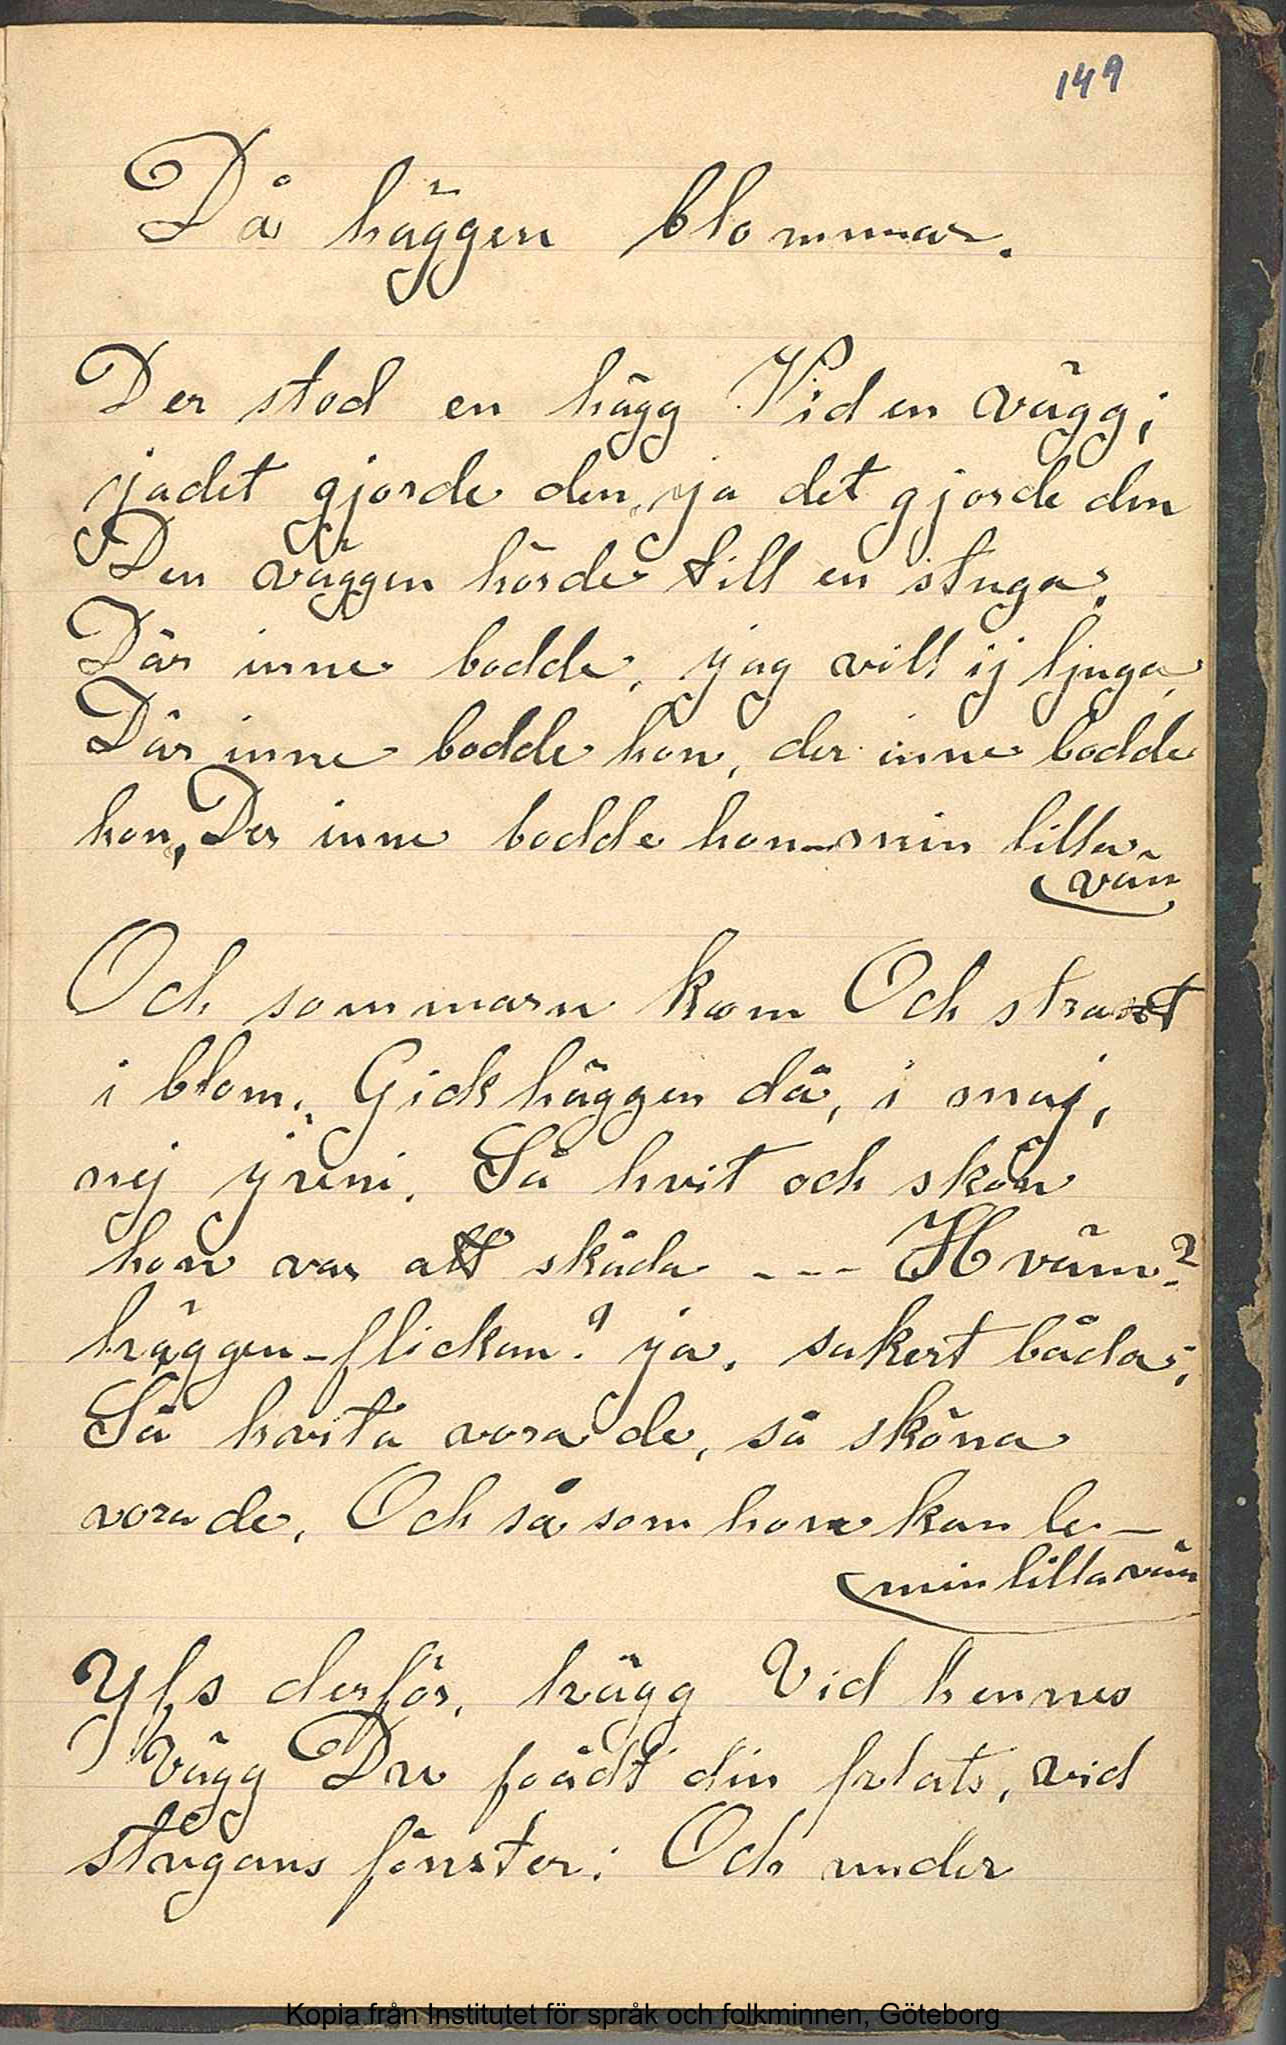 149
Då häggen blommar.
Der stod en hägg Vid en vägg;
jadet gjorde den, ja det gjorde den
Den väggen hörde till en stuga.
Där inne bodde, jag vill ij ljuga,
Där inne bodde hon, der inne bodde
hon, Der inne bodde hon - min lilla
vän
Och sommarn kom Och straxt
i blom. Gick häggen då, i maj,
nej juni. Så hvit och skön
hon var att skåda --- Hväm?
häggen-flickan? ja, säkert båda;
Så hvita vora de, så sköna
vora de, Och så som hon kan le -
min lilla vän
Yfs derför, hägg Vid hennes
vägg Du fådt din plats, vid
stugans fönster: Och under
Kopia från Institutet för språk och folkminnen, Göteborg